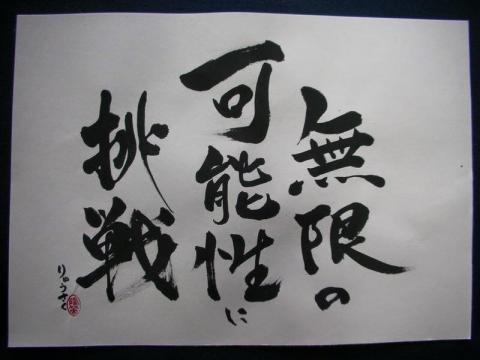 無限の
可能性に
挑戦
りゅうさく